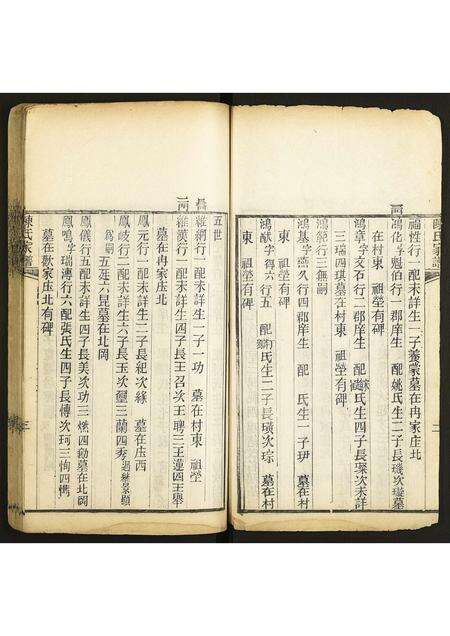 陳氏家譜
福性行一配未詳生一子養蒙墓在冉家庄北
鴻化字魁伯行一郡庠生 配姚氏生二子長璣次璇墓
在村東 祖塋有碑
鴻章字文石行二郡庠生 配 氏生四子長 次未詳
三瑞四琪墓在村東 祖塋有碑
鴻範行三無嗣
鴻基字 久行四郡庠生 配 氏生一子玾 墓在村
東 祖塋有碑
鴻猷字得六行五 配 氏生二子長璜次琮 墓在村
東 祖塋有碑
二
五世
維綱行一配未詳生一子一功 墓在村東 祖塋
維漢行一配未詳生四子長王召次王聘三王蓮四王舉
墓在冉家庄北
鳳元行一配未詳生二子長紀次緣 墓在庄西
鳳岐行二配未詳生六子長玉次 三蘭四秀
五延六昆墓在北岡
鳳儀行五配未詳生四子長美次功三 四勛墓在北岡
鳳鳴字瑞溥行六配張氏生四子長傳次珂三恂四
墓在數家庄北有碑
陳氏家譜
三